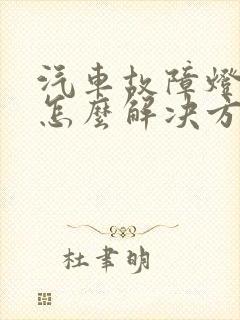 汽車故障燈
怎麼解決方
杜聿明